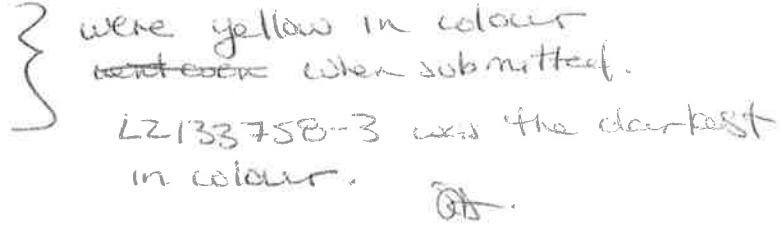 were yellow in colour
when submitted.
L2133758-3 was the darkest
in colour.